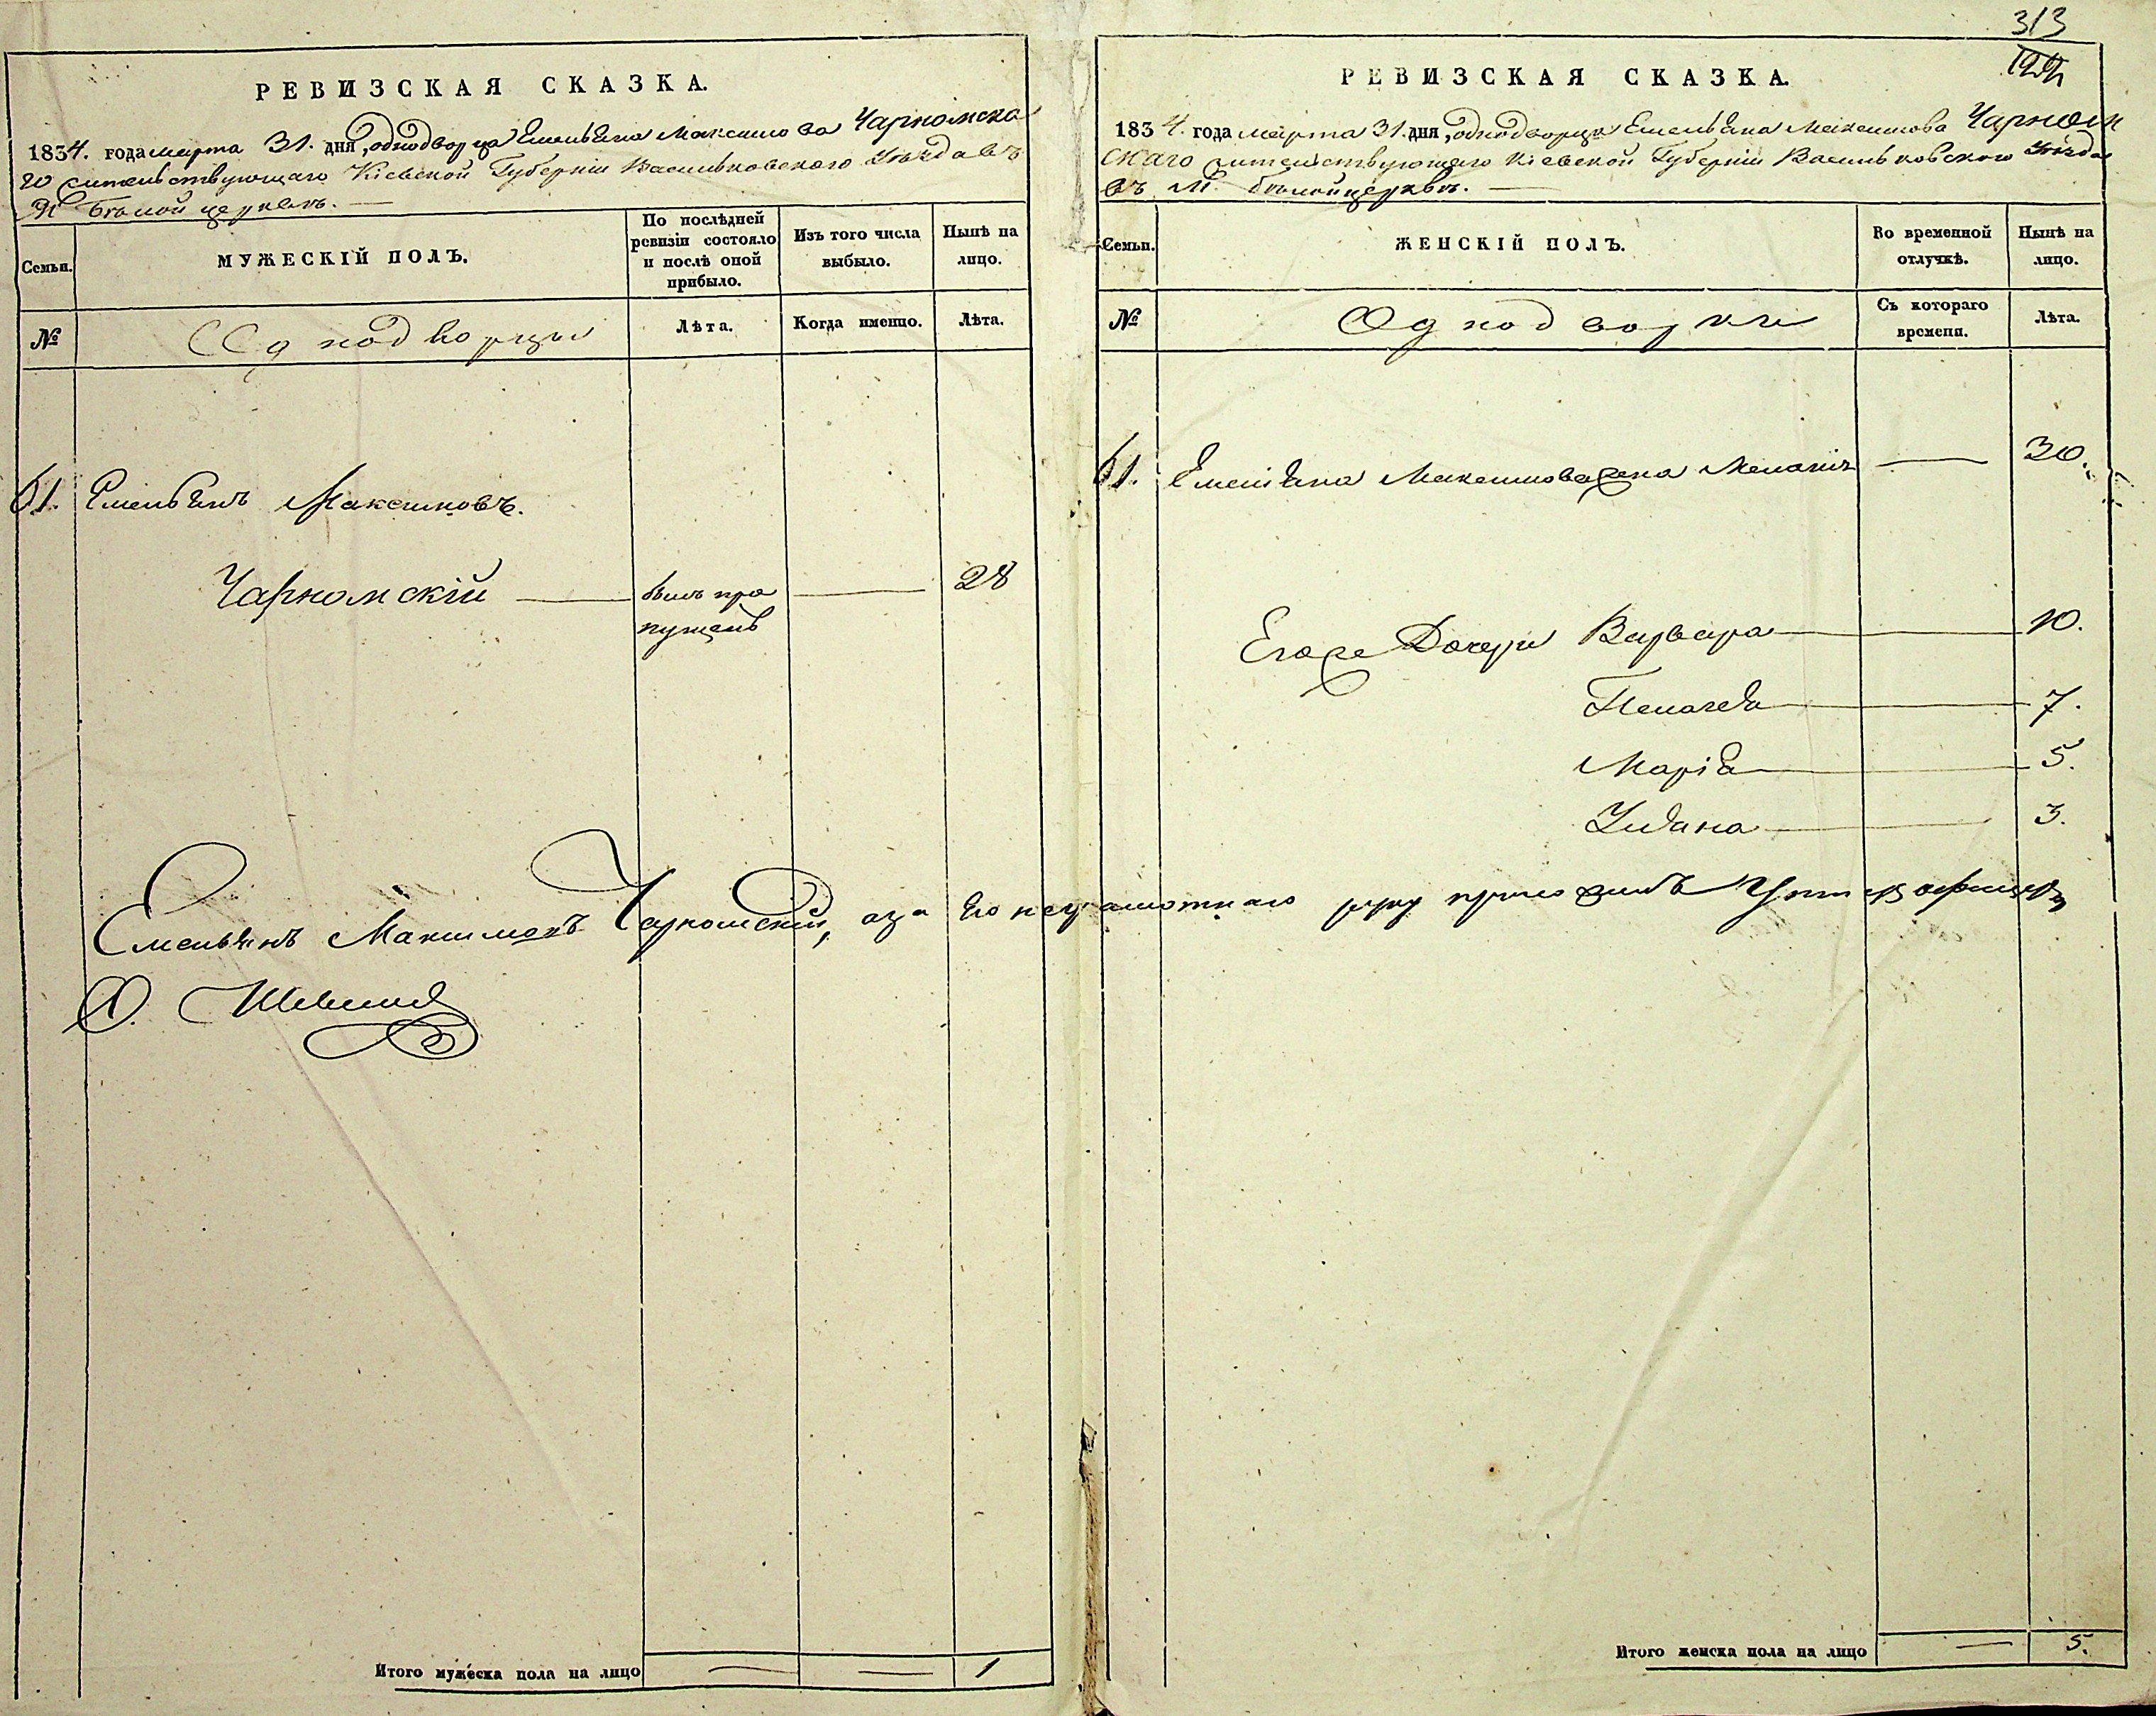 РЕВИЗСКАЯ СКАЗКА.
1834. года марта 31. дня, однодворца Емельяна Максимова Чарномска
го жительствующаго Кіевской Губерніи Васильковскаго Уѣзда въ
М. Бѣлой церквѣ.
Семьи.
МУЖЕСКІЙ ПОЛЪ.
По послѣдней ревизіи состояло и послѣ оной прибыло.
Изъ того числа выбыло.
Нынѣ на лицо.
№
Однодворцы
Лѣта.
Когда именно.
Лѣта.
61. Емельянъ Максимовъ.
Чарномскій
былъ про
пущенъ
28
Емельянъ Максимовъ Чарномскій, а за его неграмотнаго руку приложилъ Унтеръ офицеръ
Итого мужеска пола на лицо
1
313
РЕВИЗСКАЯ СКАЗКА.
1834. года марта 31. дня, однодворца Емельяна Максимова Чарном
скаго жительствующаго Кіевской Губерніи Васильковскаго Уѣзда
въ М. Бѣлойцерквѣ.
Семьи.
ЖЕНСКІЙ ПОЛЪ.
Во временной отлучкѣ.
Нынѣ на лицо.
№
Однодворки
Съ котораго времени.
Лѣта.
61. Емельяна Максимова жена Меланія 30.
Егоже Дочери Варвара 10.
Пелагея 7.
Марія 5.
Уляна 3.
Итого женска пола на лицо
5.